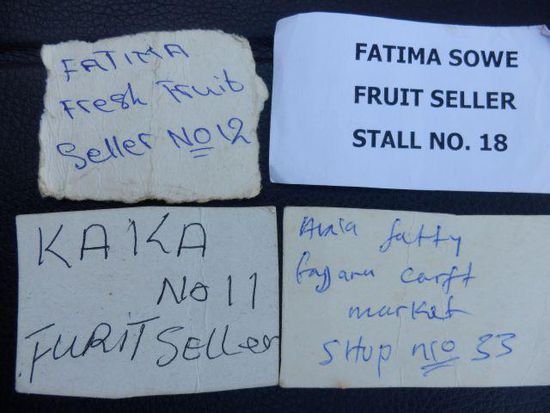 FATIMA
Fresh Fruit
Seller No 12
FATIMA SOWE
FRUIT SELLER
STALL NO. 18
KAKA
No 11
FURIT Seller
fatty
carft
market
SHOP no 33